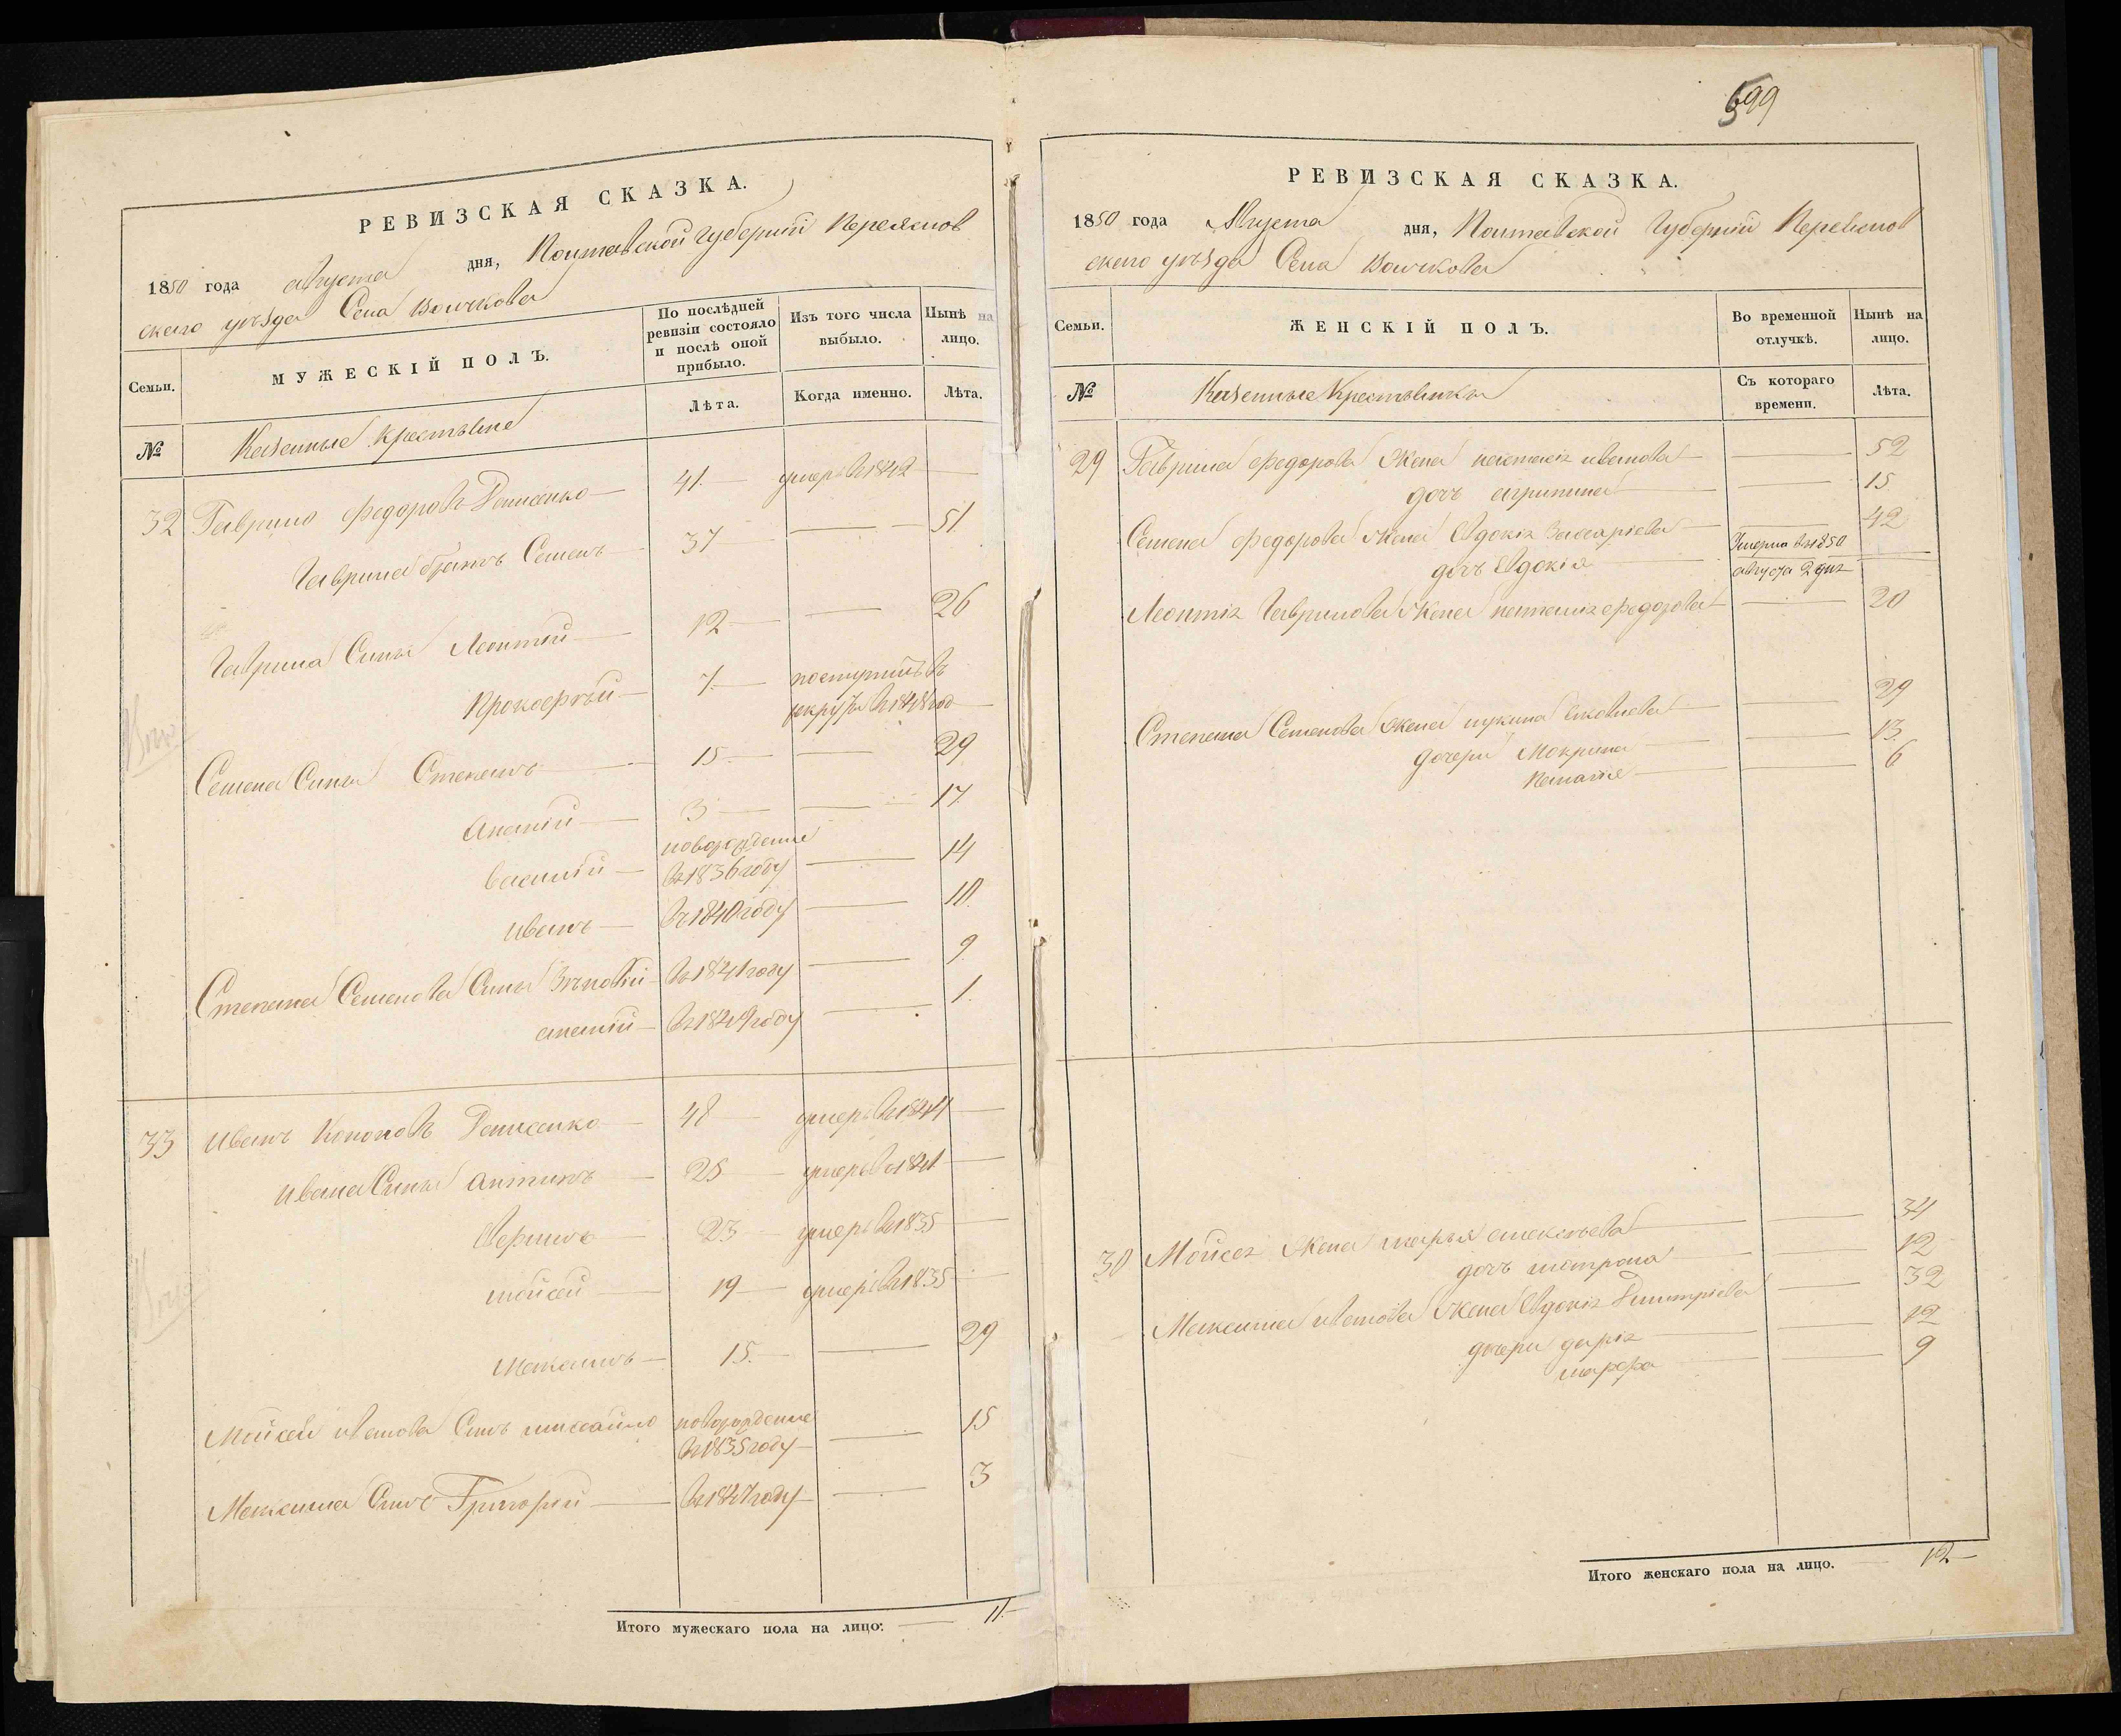 РЕВИЗСКАЯ СКАЗКА.
1850 года августа дня, Полтавской губерний Переяслов
скаго уѣзда Села Волчкова
Семьи.
МУЖЕСКІЙ ПОЛЪ.
По послѣдней
ревизіи состояло
и послѣ оной
прибыло.
Изъ того числа
выбыло.
Нынѣ на
лицо.
Лѣта.
Когда именно.
Лѣта.
№ Казенные Крестьяне
32 Гаврило Федоровъ Денисенко 41. умеръ въ 1842
Гаврила братъ Семенъ 37 51
Гаврила Сины Леонтій 12 26
Прокофѣй 7. поступилъ въ
рекруты въ 1848 год
Семена Сины Степанъ 15 29
Ананій 3 17
новорожденые
василій въ 1836 году 14
иванъ въ 1840 году 10.
Степана Семенова Сины въ 1841 году 9
ананій въ 1849 году 1.
33 иванъ Кононовъ Денисенко 48 умеръ въ 1844
ивана Сины антипъ 25 умеръ въ 1841
23 умеръ въ 1835
мойсей 19 умеръ въ 1835
Максимъ 15. 29
Мойсей иванова Синъ михайло новорожденые
въ 1835 году 15
Максима Синъ Григорій въ 1847 году 3
Итого мужескаго пола на лицо: 11
599
РЕВИЗСКАЯ СКАЗКА.
1850 года Августа дня, Полтавской Губерній Переяслов
скаго уѣзда Села Волчкова
Семьи.
ЖЕНСКІЙ ПОЛЪ.
Во временной
отлучкѣ.
Нынѣ на
лицо.
№ Казенные Крестьянки
Съ котораго
времени.
Лѣта.
29 Гаврила федорова Жена настасіа иванова 52
дочъ агрипина 15
Семена федорова Жена Евдокіа 42
дочъ Евдокія Умерла въ 1850
августа 2 дня
Леонтіа Гаврилова Жена наталіа федорова 20
Степана Семенова Жена лукина яковлева 29
дочери Мокрина 13
6
30 Мойсея Жена марья алексѣева 34
дочъ матрона 12
Максима иванова Жена Евдокіа Дмитріева 32
дочери даріа 12
марфа 9
Итого женскаго пола на лицо. 12